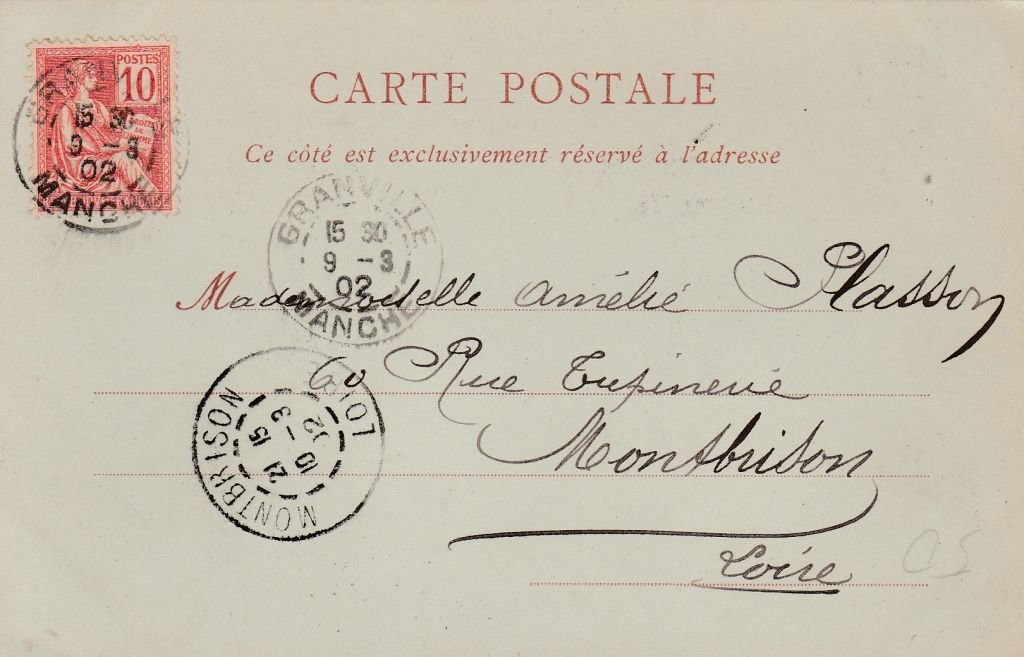 POSTES
10
DROITS
DE
HOMME
FRANÇAISE
GRANVILLE
15 30
9 - 3
02
MANCHE
CARTE POSTALE
Ce côté est exclusivement réservé à l'adresse
GRANVILLE
15 30
9 - 3
02
MANCHE
Mademoiselle Amélie Plasson
60 Rue Tupinerie
Montbrison
Loire
MONTBRISON
21 15
10 - 3
02
LOIRE
CS